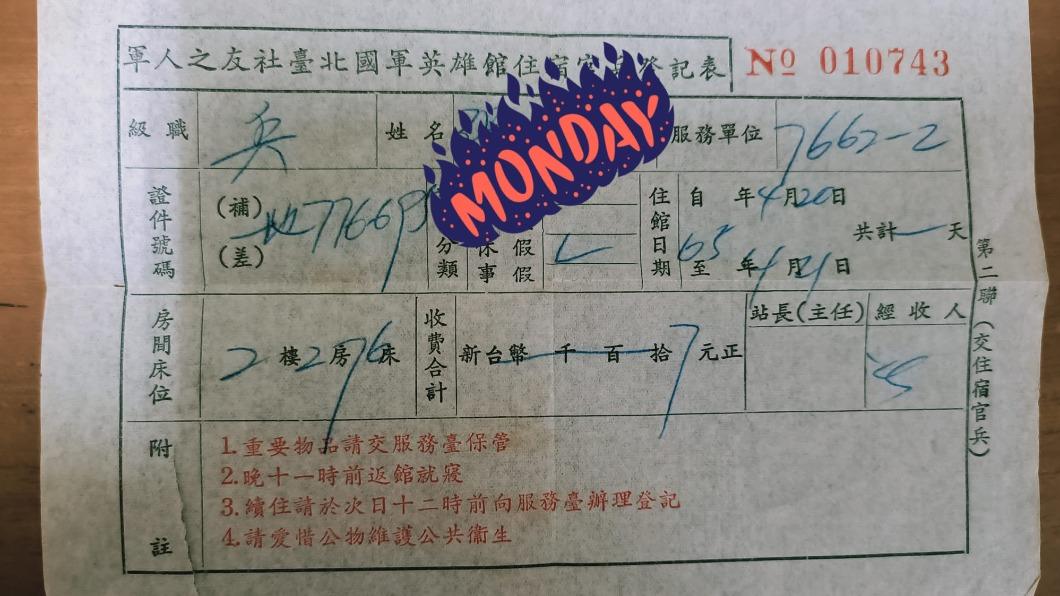 軍人之友社臺北國軍英雄館住宿官兵登記表
No 010743
級職 兵 姓名 服務單位 7662-2
MONDAY
證件號碼 (補) (差) 77669 分類 休假 事假 住館日期 自 年4月20日 至65年4月21日 共計一天
房間床位 2樓2房76床 收費合計 新台幣 千 百 拾7元正 站長(主任) 經收人
附註
1.重要物品請交服務臺保管
2.晚十一時前返館就寢
3.續住請於次日十二時前向服務臺辦理登記
4.請愛惜公物維護公共衞生
第二聯(交住宿官兵)